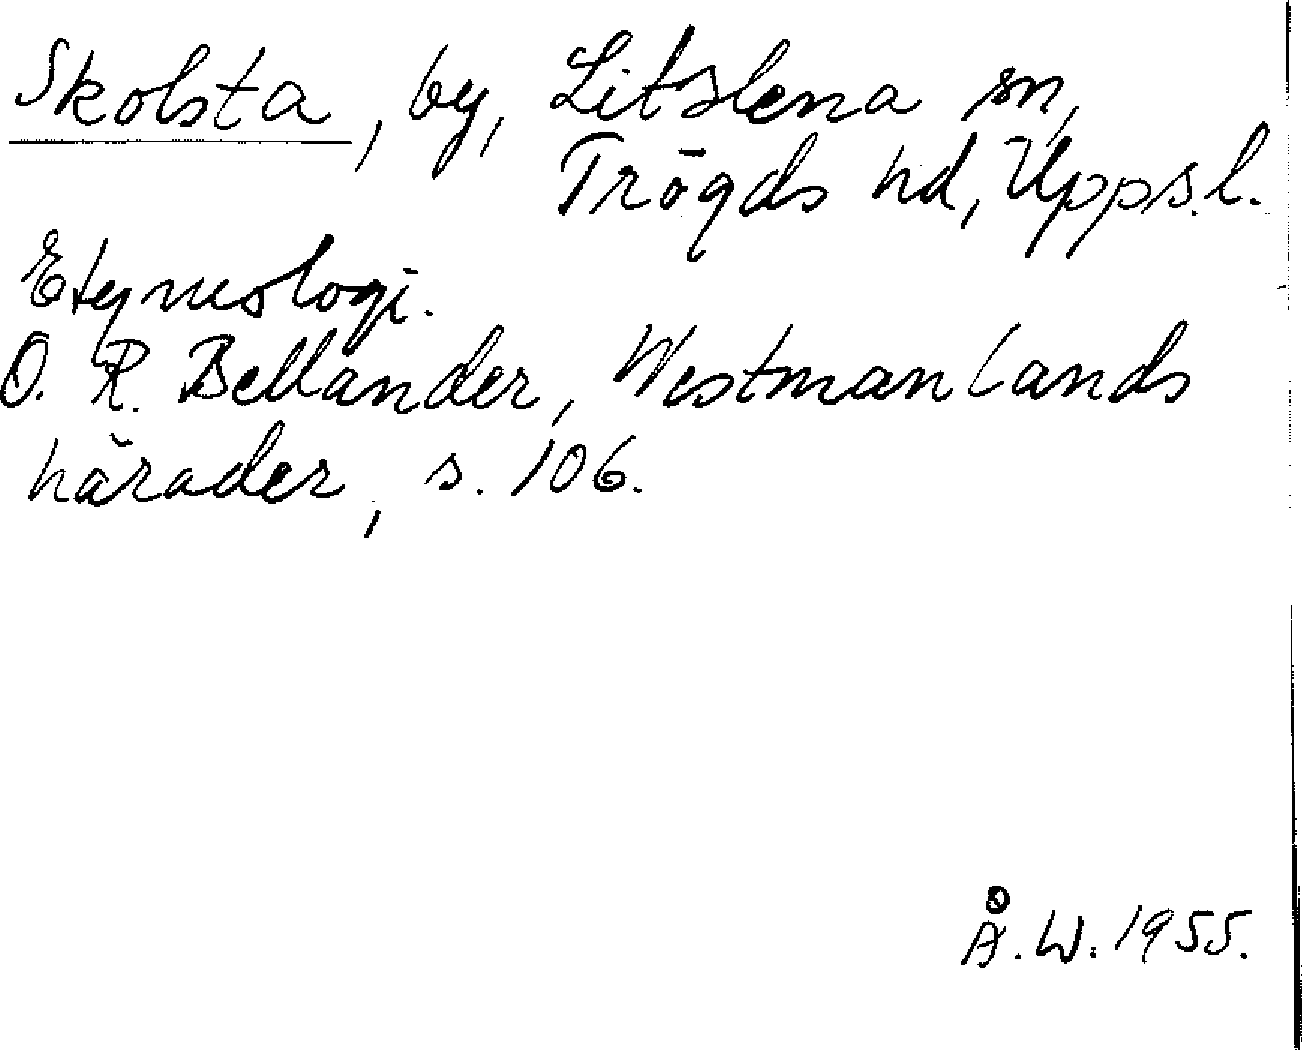 Skolsta, by, Litslena sn,
Trögds hd, Uppsl.
Etymologi.
O. R. Bellander, Westmanlands
härader, s. 106.
Å. W. 1955.